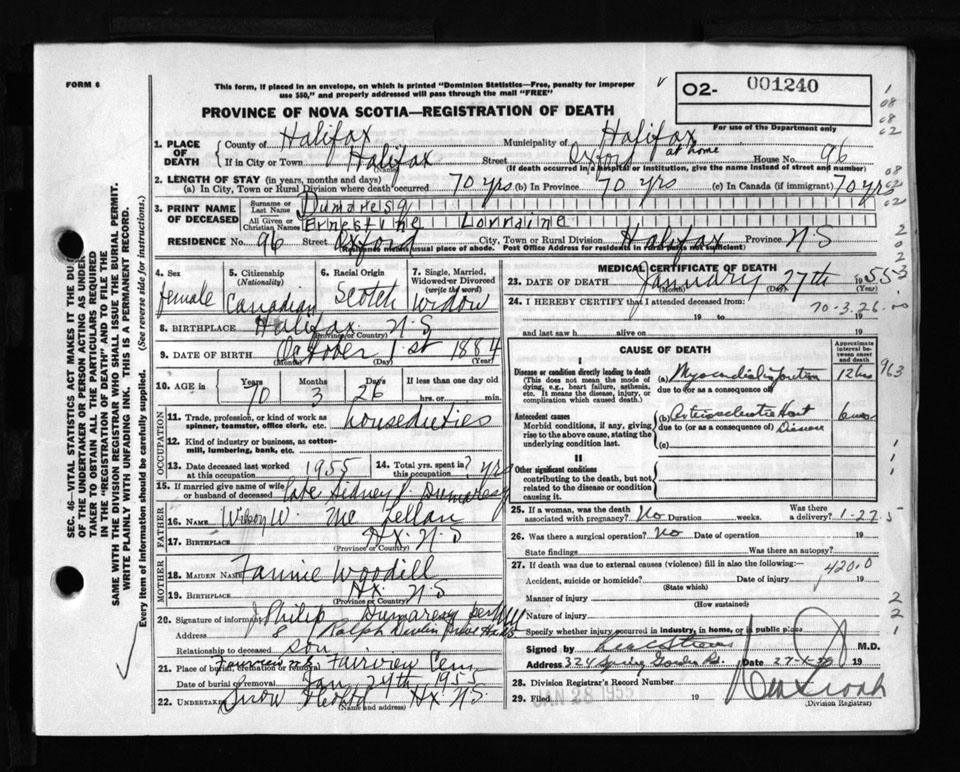 FORM 6
This form, if placed in an envelope, on which is printed "Dominion Statistics—Free, penalty for improper
use $50," and properly addressed will pass through the mail "FREE"
O2- 001240
For use of the Department only
PROVINCE OF NOVA SCOTIA—REGISTRATION OF DEATH
1. PLACE OF DEATH
County of Halifax Municipality of Halifax
If in City or Town Halifax Street Oxford at home House No. 96
(Name) (If death occurred in a hospital or institution, give the name instead of street and number)
2. LENGTH OF STAY (in years, months and days)
(a) In City, Town or Rural Division where death occurred 70 yrs (b) In Province 70 yrs (c) In Canada (if immigrant) 70 yrs
3. PRINT NAME OF DECEASED
Surname or Last Name Dumaresq
All Given or Christian Names Ernestine Lorraine
RESIDENCE No. 96 Street Oxford City, Town or Rural Division Halifax Province N S
Residence means usual place of abode. Post Office Address for residents in rural parts not sufficient)
4. Sex female
5. Citizenship (Nationality) Canadian
6. Racial Origin Scotch
7. Single, Married, Widowed or Divorced (write the word) Widow
8. BIRTHPLACE Halifax N-S
(Province or Country)
9. DATE OF BIRTH October 1st 1884
(Month) (Day) (Year)
10. AGE in Years 70 Months 3 Days 26 If less than one day old hrs. or min.
OCCUPATION
11. Trade, profession, or kind of work as spinner, teamster, office clerk, etc. houseduties
12. Kind of industry or business, as cotton-mill, lumbering, bank, etc.
13. Date deceased last worked at this occupation 1955
14. Total yrs. spent in this occupation ? yrs
15. If married give name of wife or husband of deceased late Sidney J. Dumaresq
FATHER
16. NAME Wilson W. Mc Lellan
17. BIRTHPLACE Hx. N-S
(Province or Country)
MOTHER
18. MAIDEN NAME Fannie Woodill
19. BIRTHPLACE Hx N-S
(Province or Country)
20. Signature of informant J Philip Dumaresq
Address 8 Ralph Devlin Drive
Relationship to deceased son
21. Place of burial, cremation or removal Fairview N.S. Fairview Cem
Date of burial or removal Jan 29th 1955
22. UNDERTAKER Snow Hx N S.
(Name and address)
MEDICAL CERTIFICATE OF DEATH
23. DATE OF DEATH January 27th 1955
(Month) (Day)
24. I HEREBY CERTIFY that I attended deceased from
70-3-26
19 to 19
and last saw h alive on 19
CAUSE OF DEATH
Approximate interval between onset and death
I
Disease or condition directly leading to death
(This does not mean the mode of dying, e.g., heart failure, asthenia, etc. It means the disease, injury, or complication which caused death.)
(a) Myocardial Infarction 12 hrs 963
due to (or as a consequence of)
Antecedent causes
Morbid conditions, if any, giving rise to the above cause, stating the underlying condition last.
(b) Arteriosclerotic Heart Disease
due to (or as a consequence of)
(c)
II
Other significant conditions
contributing to the death, but not related to the disease or condition causing it.
25. If a woman, was the death associated with pregnancy? No Duration weeks. Was there a delivery? 1-27-5
26. Was there a surgical operation? No Date of operation 19
State findings Was there an autopsy?
27. If death was due to external causes (violence) fill in also the following:— 420.0
Accident, suicide or homicide? Date of injury 19
(State which)
Manner of injury
(How sustained)
Nature of injury
Specify whether injury occurred in industry, in home, or in public place
Signed by M.D.
Address 324 Spring Garden Rd. Date 27-1- 19
28. Division Registrar's Record Number
29. Filed JAN 28 1955
(Division Registrar)
SEC. 46—VITAL STATISTICS ACT MAKES IT THE DU
OF THE UNDERTAKER OR PERSON ACTING AS UNDER
TAKER TO OBTAIN ALL THE PARTICULARS REQUIRED
IN THE "REGISTRATION OF DEATH" AND TO FILE THE
SAME WITH THE DIVISION REGISTRAR WHO SHALL ISSUE THE BURIAL PERMIT.
WRITE PLAINLY WITH UNFADING INK. THIS IS A PERMANENT RECORD.
Every item of information should be carefully supplied. (See reverse side for instructions.)